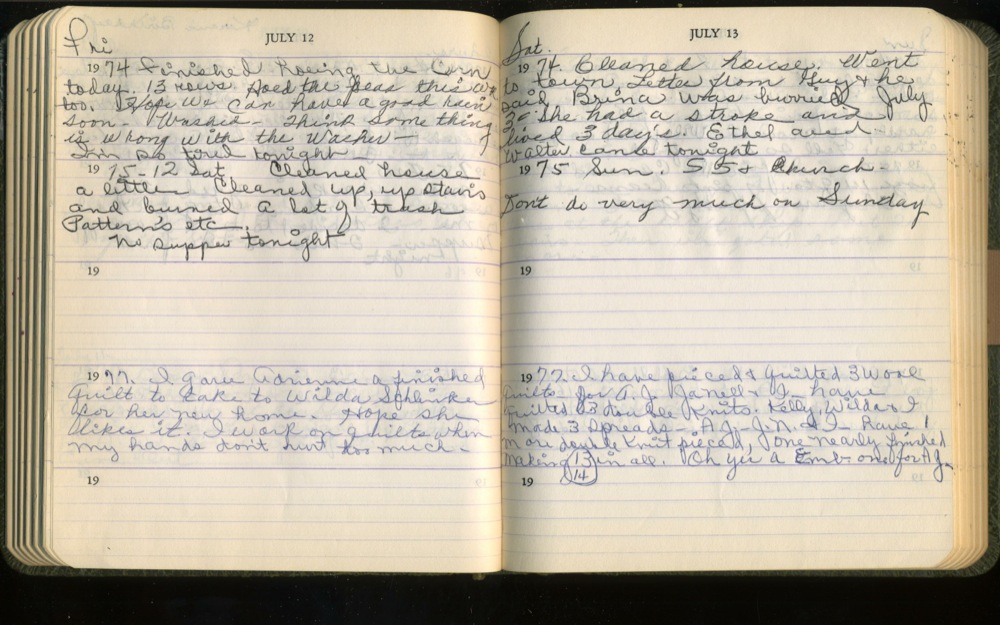 Fri
JULY 12
1974 Finished hoeing the Corn
today. 13 rows Hoed the peas this
too. Hope we can have a good rain
soon - Washed - Think some thing
is whong with the Washer -
I'm so tired tonight -
1975-12 Sat. Cleaned house
a little. Cleaned up, up stairs
and burned a lot of trash
Patterns etc.
No supper tonight
19
1977. I gave Adrienne a finished
Quilt to take to Wilda
for her new home. Hope she
likes it. I work on quilts when
my hands don't hurt too much -
19
Sat.
JULY 13
1974. Cleaned house. Went
to town. Letter from Guy & he
said Brina was burried July
3 - She had a stroke and
lived 3 days. Ethel and
Walter came tonight
1975 Sun. S S & Church.
Don't do very much on Sunday
19
1977. I have pieced & quilted 3 Wool
quilts - for A. J. Janell & I - have
quilted 3 double Knits. Kelly, Wilda & I
made 3 Spreads - A. J. - J. N. & I - have 1
more double Knit pieced, 1 one nearly finished
making 13 in all. Oh yes a Emb- one for A J.
14
19